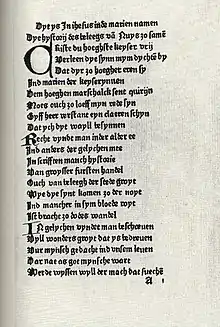 Dyt ys In ihesus inde marien namen
Dye hystorij des beleegs vā Nuys zo samē
Criste du hoeghste keyser vrij
Verleen dye synn mym dychtē by
Dat dyr zo hoegher eren sy
Ind marien der keyserynnen
Dem hoeghen marschalck sent quirijn
Moes ouch zo loeff myn rede syn
Gyff heer verstant eyn claeren schyn
Dat ych dyt wayll besynnen
Recht vynde man inder alder ee
Ind anders der gelychen mee
In scrifften manch hystorie
Van groysser fursten handel
Ouch van beleegh der stede groyt
Wye dye synt komen zo der noyt
Ind mancher in sym bloede royt
Ist bracht zo doedes wandel
In gelychen vyndet man beschreuen
Vyll wonders groyt dat ys bedreuen
Bur mynsch gedacht ind vnsem leuen
Dar nae os goe mynsche ware
Werde wyssen wyll der mach dat sueche
a